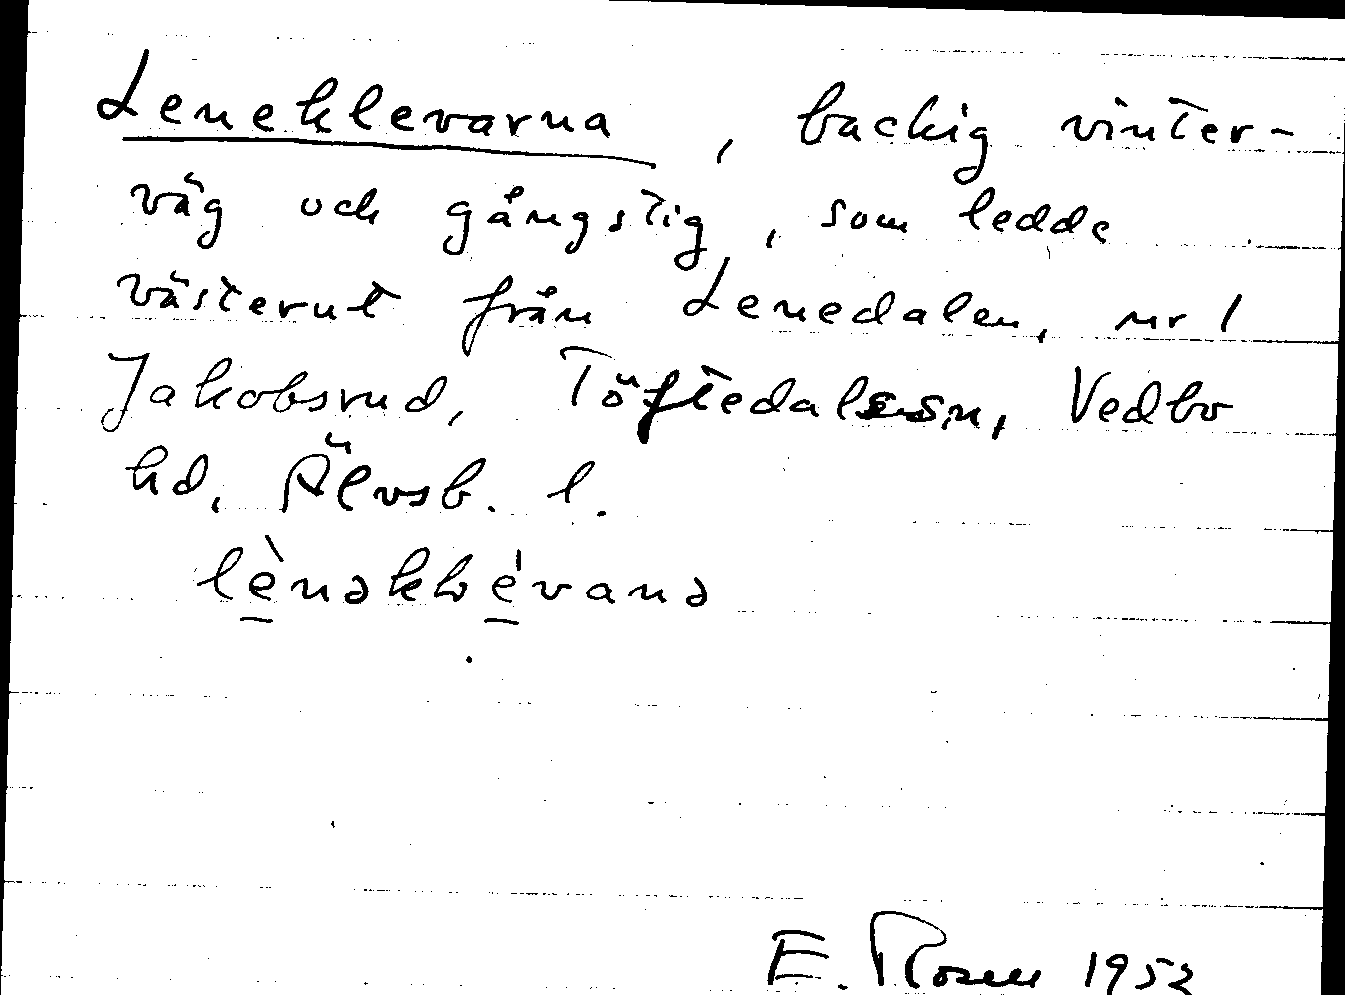 Leneklevarna, backig vinter-
väg och gångstig, som ledde
västerut från Lenedalen, nr 1
Jakobsrud, Töftedals sn,  Vedbo
hd, Älvsb. l.
lènəklévanə
E. Rosell 1952